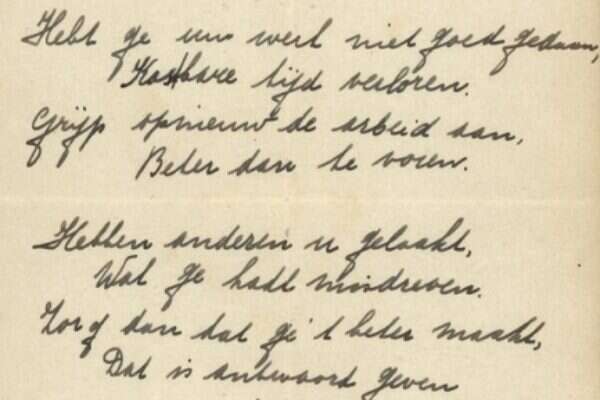 Hebt ge uw werk niet goed gedaan,
Kostbare tijd verloren.
Grijp opnieuw de arbeid aan,
Beter dan te voren.
Hebben anderen u gelaakt,
Wat ge hadt misdreven.
Zorg dan dat ge 't beter maakt,
Dat is antwoord geven